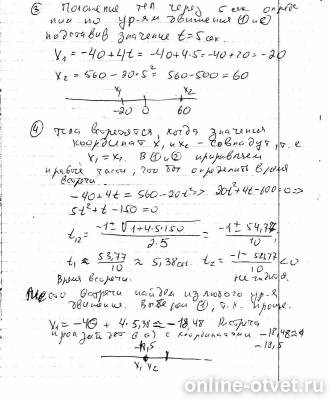 ③ Положение тел через 5 сек опреде
лим по ур-ям движения ① и ②
подставив значение t=5 сек.
X₁ = -40+4t = -40+4·5 = -40+20 = -20
X₂ = 560-20·5² = 560-500 = 60
X₁ X₂
-20 0 60
④ Тела встретятся, когда значения
координат X₁ и X₂ - совпадут, т.е
X₁ = X₂. В ① и ② приравняем
правые части, чтобы определить время
встречи.
-40+4t = 560-20t² => 20t²+4t-600=0 =>
5t²+t-150=0
t₁₂ = (-1±√(1+4·5·150))/(2·5) = (-1±54,77)/10 ;
t₁ ≈ 53,77/10 ≈ 5,38 сек. t₂ = (-1-54,77)/10 <0
Время встречи. не годится.
Место встречи найдем из любого ур-я
движения. ①, т.к. проще.
X₁ = -40 + 4·5,38 ≈ -18,48 Встреча
произойдет в с координатами -18,48 ≈
-18,5
-18,5
X₁ X₂
online-otvet.ru